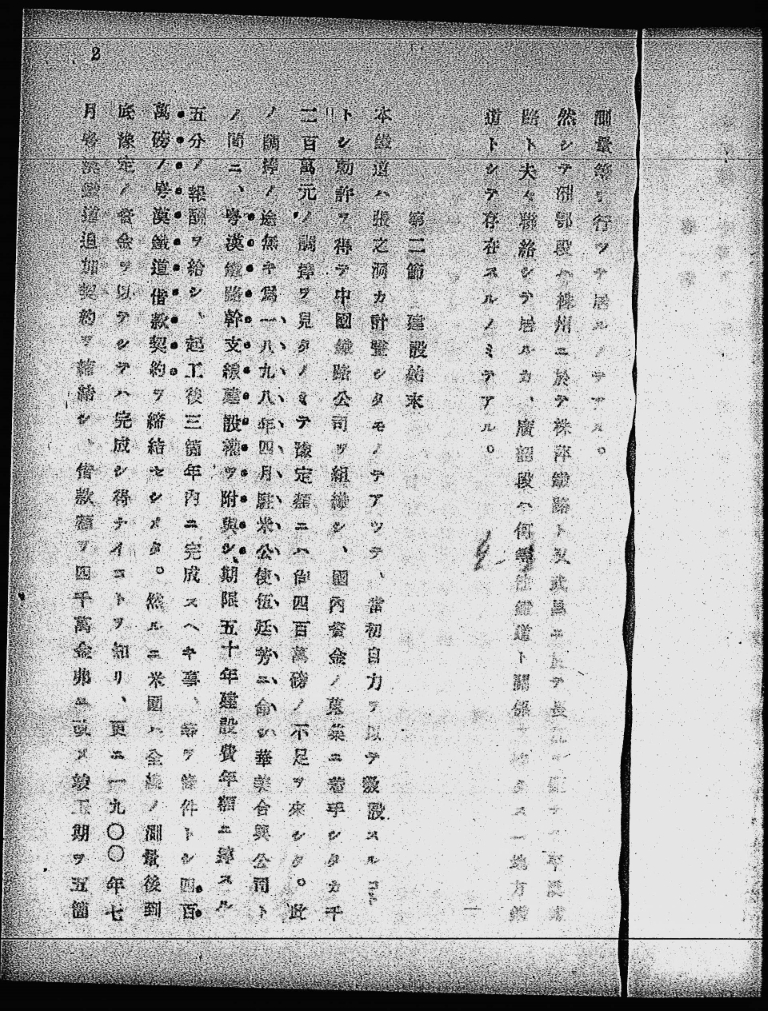 2
測量等ヲ行ツテ居ルノテアル。
然シテ湘鄂段ハ株州ニ於テ株萍鐵路ト又武昌ニ於テ長江ヲ テ平漢
路ト夫々聯絡シテ居ルカ、廣韶段ハ何等他鐵道ト關係ヲ有タス一地方鐵
道トシテ存在スルノミテアル。
第二節 建設始末
本鐵道ハ張之洞カ計畫シタモノテアツテ、當初自力ヲ以テ敷設スルコト
トシ勅許ヲ得テ中國鐵路公司ヲ組織シ、國內資金ノ蒐集ニ着手シタカ千
二百萬元ノ調達ヲ見タノミテ豫定額ニハ尙四百萬磅ノ不足ヲ來シタ。此
ノ調達ノ途無キ爲一八九八年四月駐米公使伍廷芳ニ命シ華美合興公司ト
ノ間ニ、粤漢鐵路幹支線建設權ヲ附與シ期限五十年建設費年額ニ達スル
五分ノ報酬ヲ給シ、起工後三箇年內ニ完成スヘキ事、等ヲ條件トシ四百
萬磅ノ粤漢鐵道借款契約ヲ締結セシメタ。然ルニ米國ハ全線ノ測量後到
底豫定ノ資金ヲ以テシテハ完成シ得ナイコトヲ知リ、更ニ一九〇〇年七
月粤漢鐵道追加契約ヲ締結シ、借款額ヲ四千萬金弗ニ改メ竣工期ヲ五箇